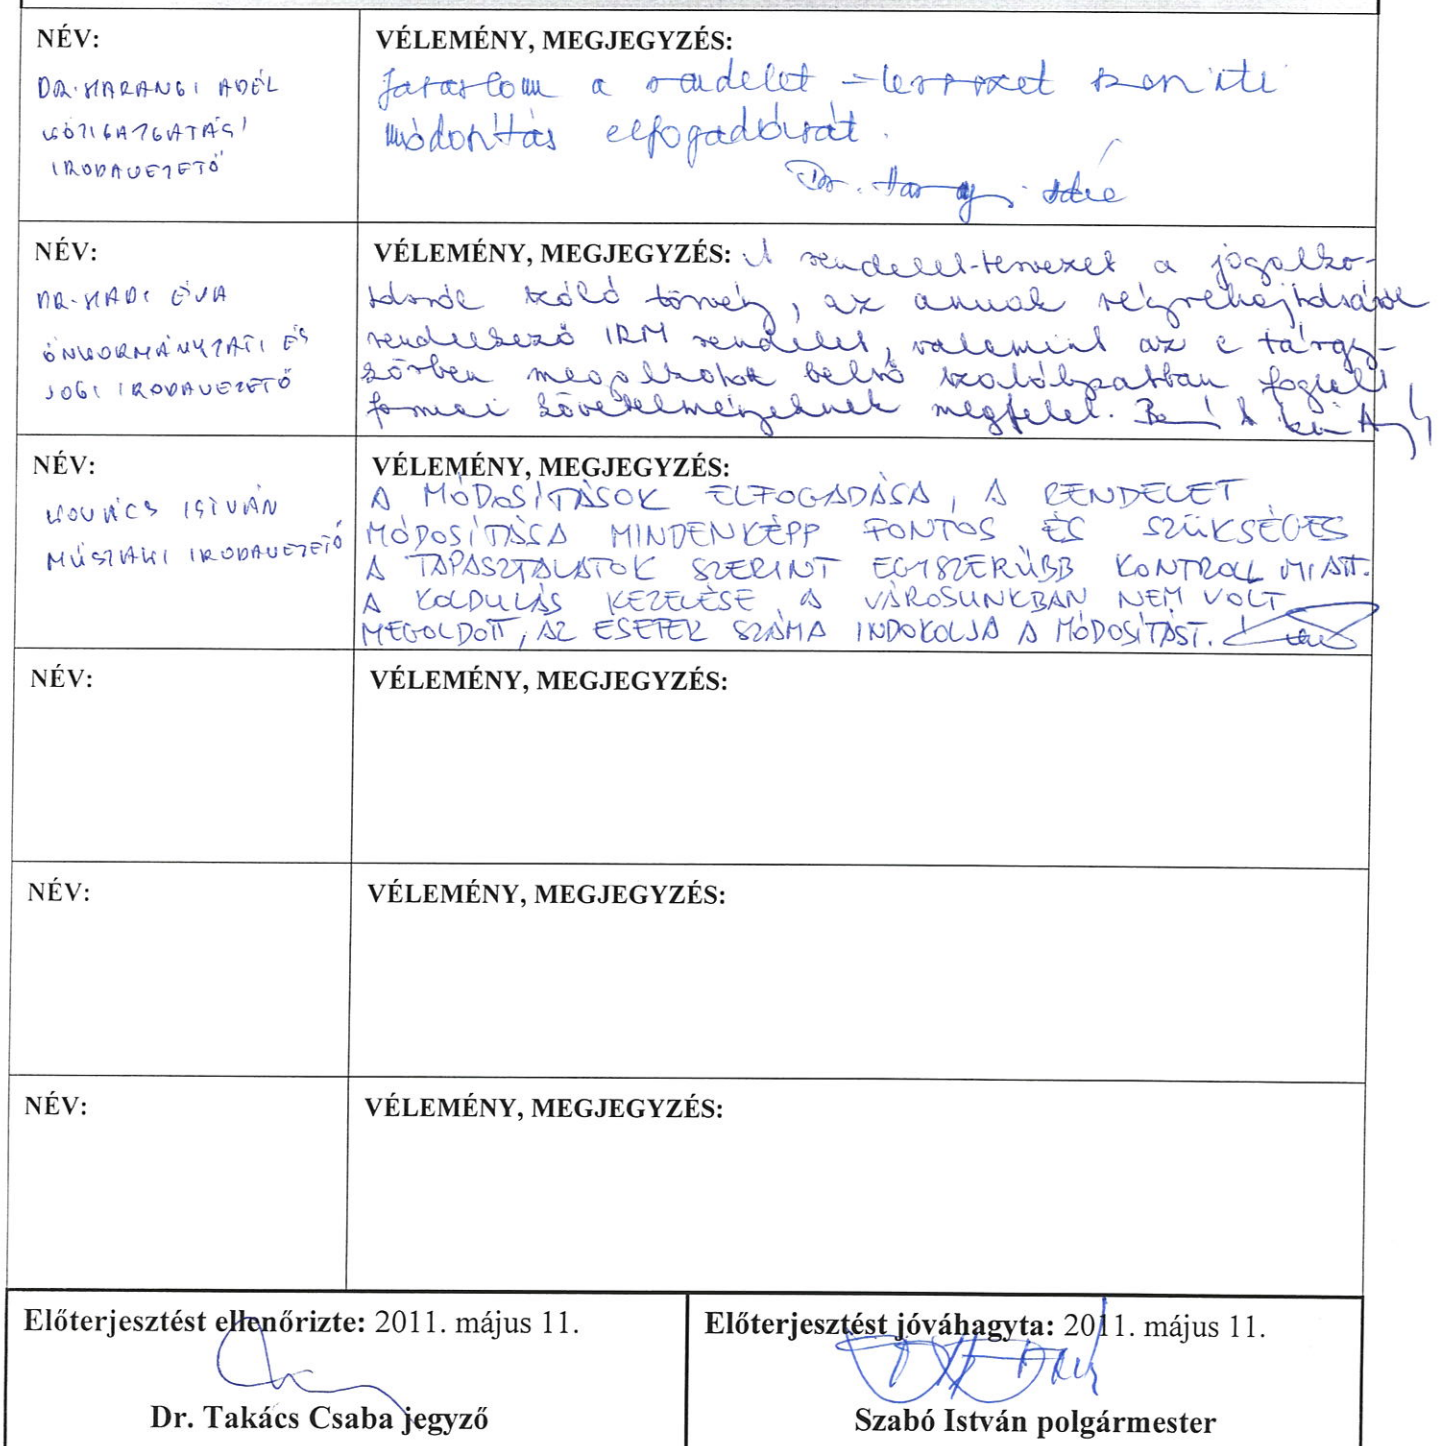 NÉV:
DR. HARANGI ADÉL
KÖZIGAZGATÁSI
IRODAVEZETŐ
VÉLEMÉNY, MEGJEGYZÉS:
Javaslom a rendelet-tervezet szerinti
módosítás elfogadását.
Dr. Harangi Adél
NÉV:
DR. HADI ÉVA
ÖNKORMÁNYZATI ÉS
JOGI IRODAVEZETŐ
VÉLEMÉNY, MEGJEGYZÉS: A rendelet-tervezet a jogalko-
tásról szóló törvény, az annak végrehajtásáról
rendelkező IRM rendelet, valamint az e tárgy-
körben megalkotott belső szabályzatban foglalt
formai követelményeknek megfelel.
NÉV:
KOVÁCS ISTVÁN
MŰSZAKI IRODAVEZETŐ
VÉLEMÉNY, MEGJEGYZÉS:
A MÓDOSÍTÁSOK ELFOGADÁSA, A RENDELET
MÓDOSÍTÁSA MINDENKÉPP FONTOS ÉS SZÜKSÉGES
A TAPASZTALATOK SZERINT EGYSZERŰBB KONTROLL MIATT.
A KOLDULÁS KEZELÉSE A VÁROSUNKBAN NEM VOLT
MEGOLDOTT, AZ ESETEK SZÁMA INDOKOLJA A MÓDOSÍTÁST.
NÉV:
VÉLEMÉNY, MEGJEGYZÉS:
NÉV:
VÉLEMÉNY, MEGJEGYZÉS:
NÉV:
VÉLEMÉNY, MEGJEGYZÉS:
Előterjesztést ellenőrizte: 2011. május 11.
Dr. Takács Csaba jegyző
Előterjesztést jóváhagyta: 2011. május 11.
Szabó István polgármester